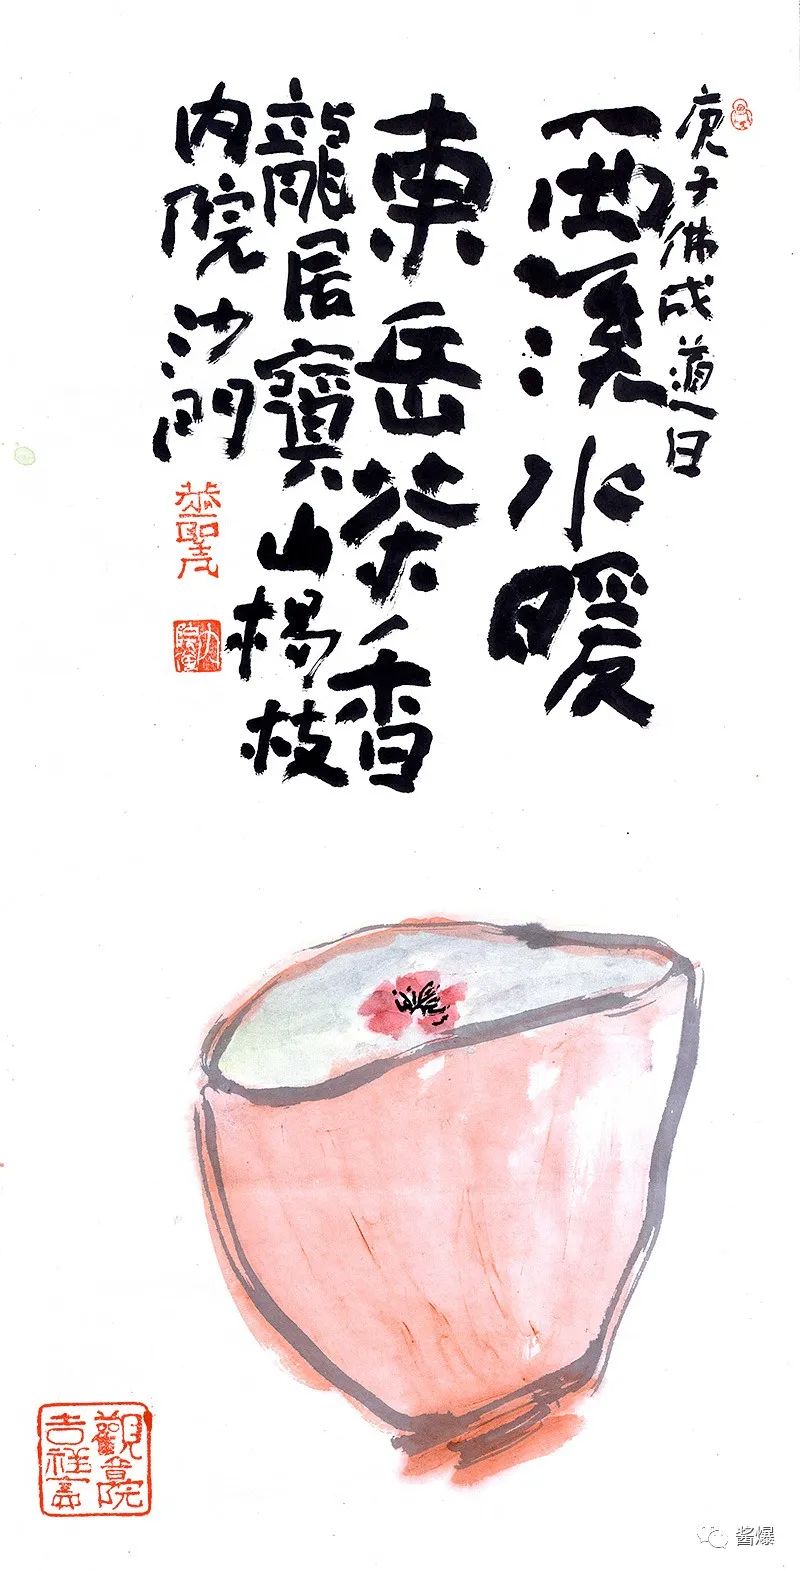 庚子佛成道日
西溪水暖
東岳茶香
龍居寶山楊枝
内院沙門
觀音院
吉祥齋
酱爆